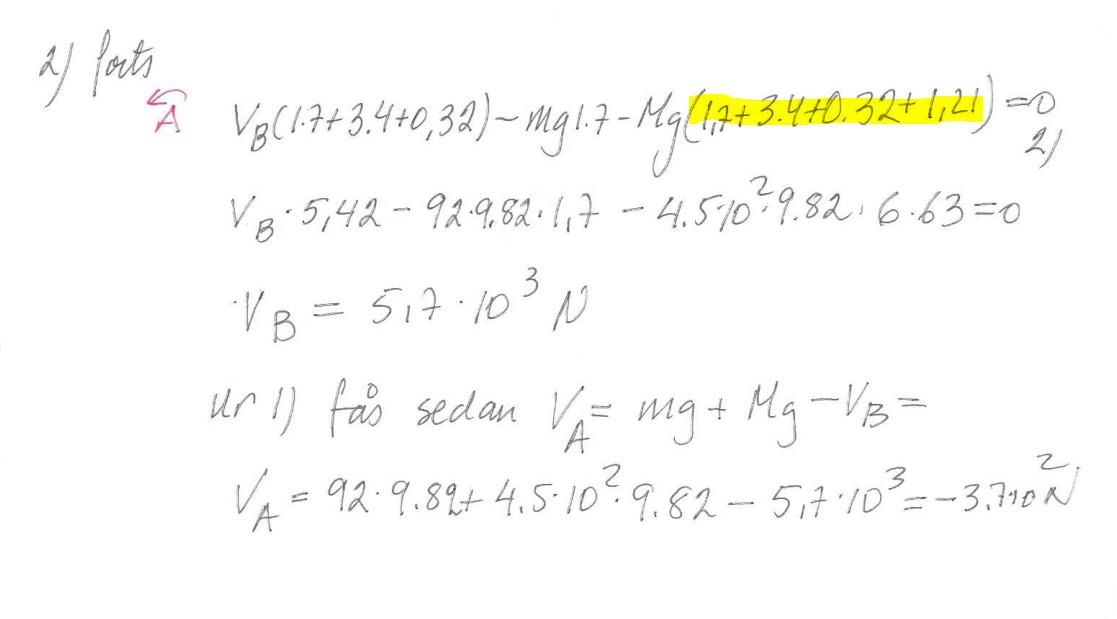 2) forts
A V_B(1.7+3.4+0,32) - mg1.7 - Mg(1,7+3.4+0.32+1,21) = 0
2)
V_B · 5,42 - 92·9,82·1,7 - 4.5·10²·9.82·6.63 = 0
V_B = 5,7·10³ N
Ur 1) fås sedan V_A = mg + Mg - V_B =
V_A = 92·9.82 + 4,5·10²·9.82 - 5,7·10³ = -3.7·10² N